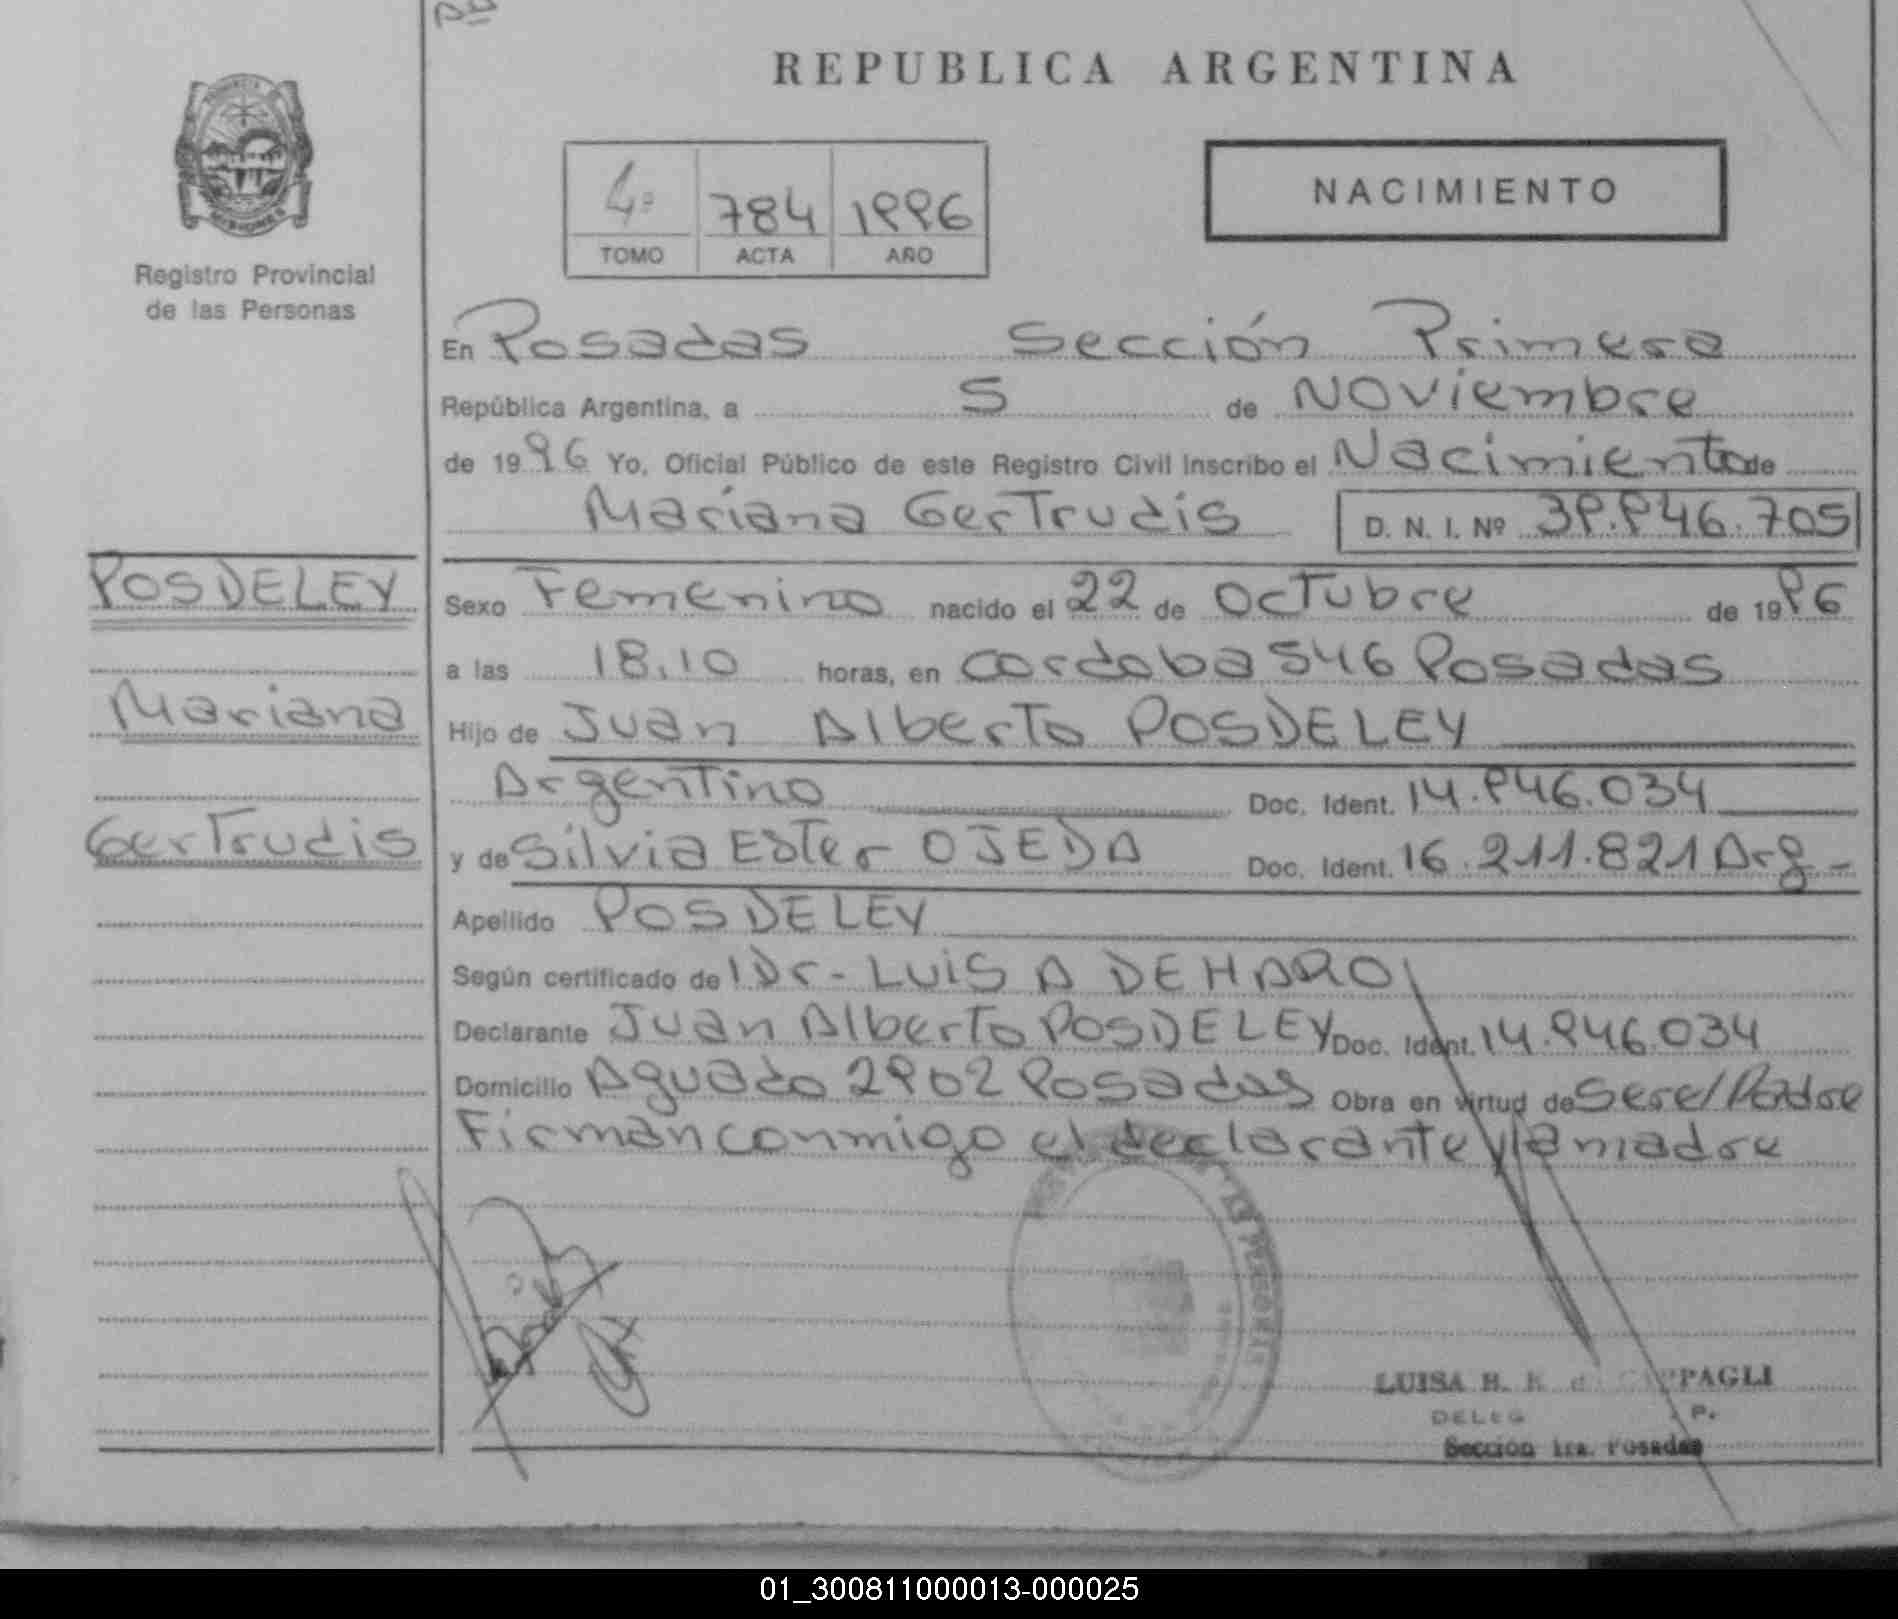 REPUBLICA ARGENTINA
4º 784 1996
TOMO ACTA AÑO
NACIMIENTO
Registro Provincial
de las Personas
En Posadas Sección Primera
República Argentina, a 5 de Noviembre
de 1996 Yo, Oficial Público de este Registro Civil inscribo el Nacimiento de
Mariana Gertrudis D. N. I. Nº 39.946.705
POSDELEY
Mariana
Gertrudis
Sexo Femenino nacido el 22 de Octubre de 1996
a las 18.10 horas, en Cordoba 546 Posadas
Hijo de Juan Alberto POSDELEY
Argentino Doc. Ident. 14.946.034
y de Silvia Ester OJEDA Doc. Ident. 16.211.821 Arg-
Apellido POSDELEY
Según certificado de Dr- LUIS A DE HARO
Declarante Juan Alberto POSDELEY Doc. Ident. 14.946.034
Domicilio Aguado 2902 Posadas Obra en virtud de Ser el Padre
Firman conmigo el declarante y la madre
LUISA H. K. d PPAGLI
DELEG P.
Sección 1ra. Posadas
01_300811000013-000025